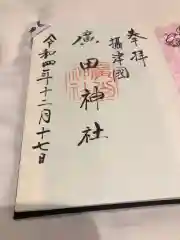 奉拝
攝津國
廣田神社
令和四年十二月十七日